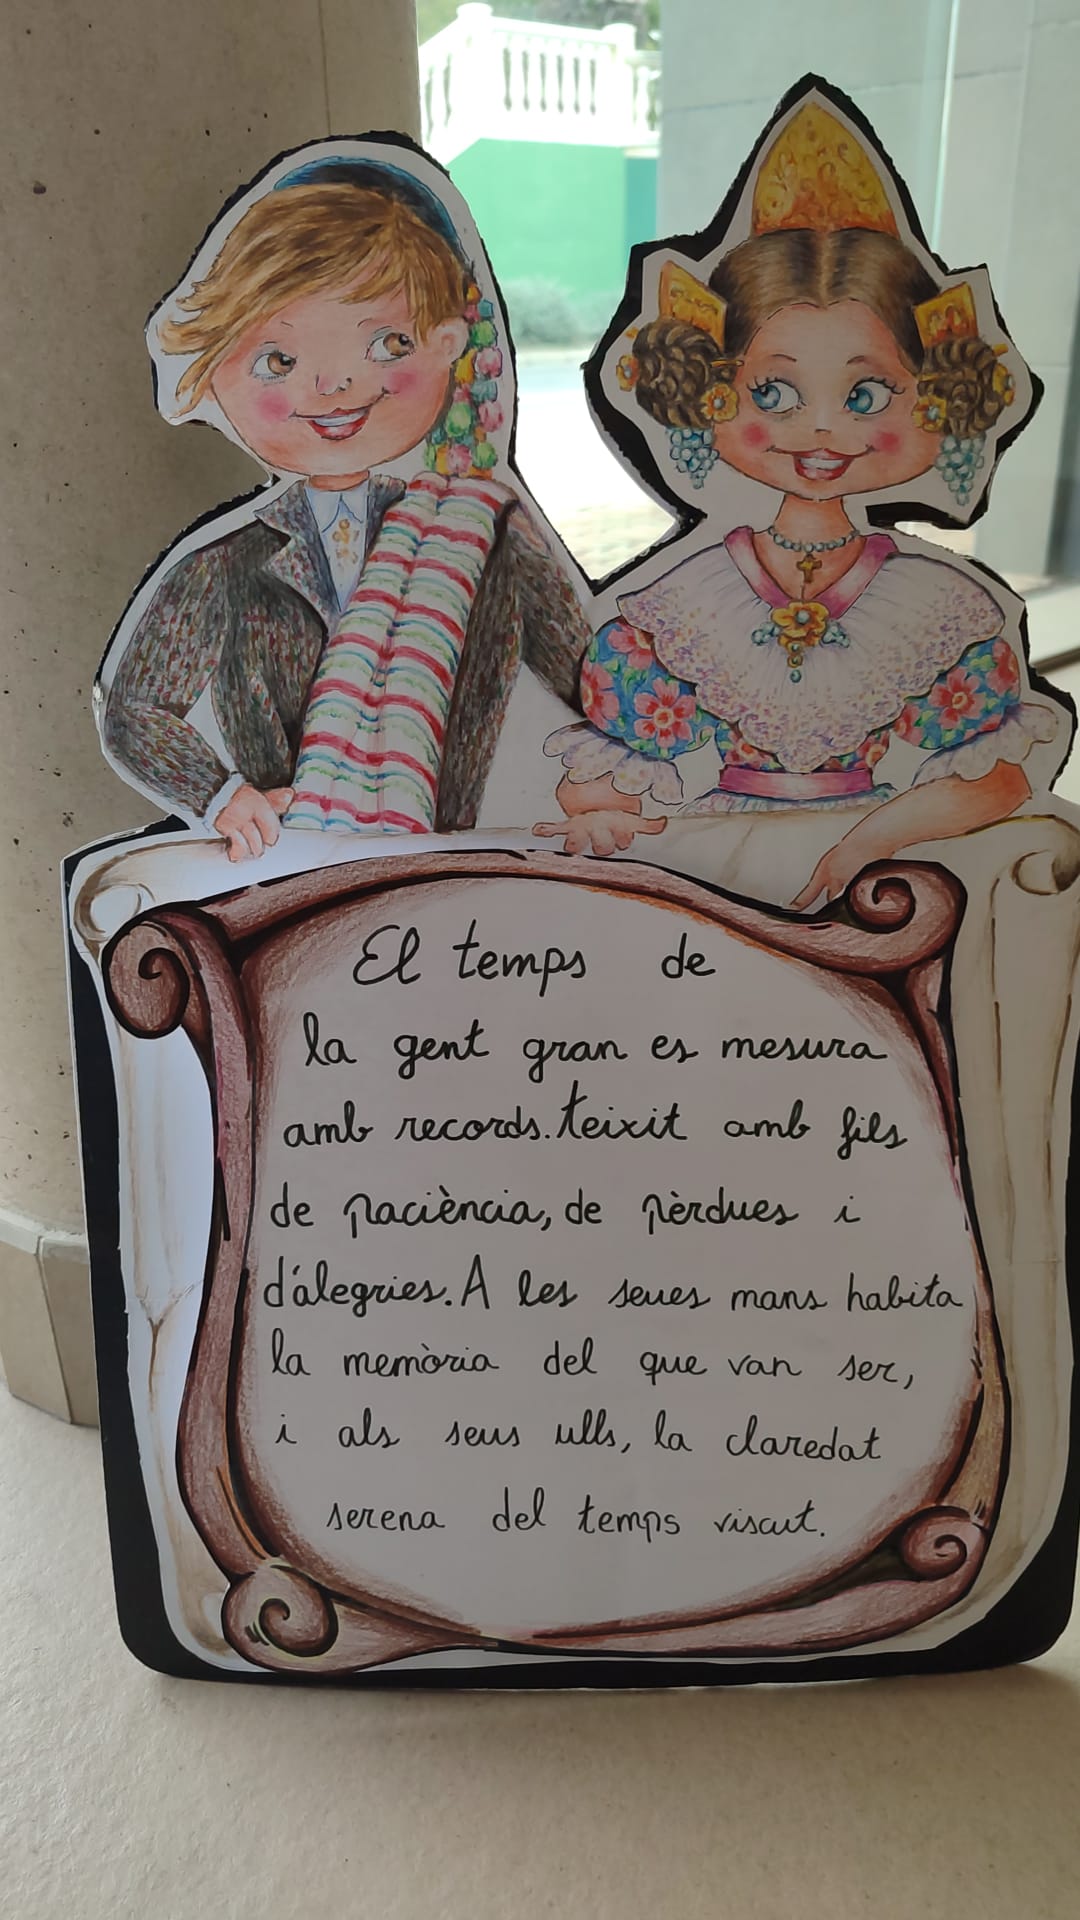 El temps de
la gent gran es mesura
amb records. teixit amb fils
de paciència, de pèrdues i
d'alegries. A les seues mans habita
la memòria del que van ser,
i als seus ulls, la claredat
serena del temps viscut.